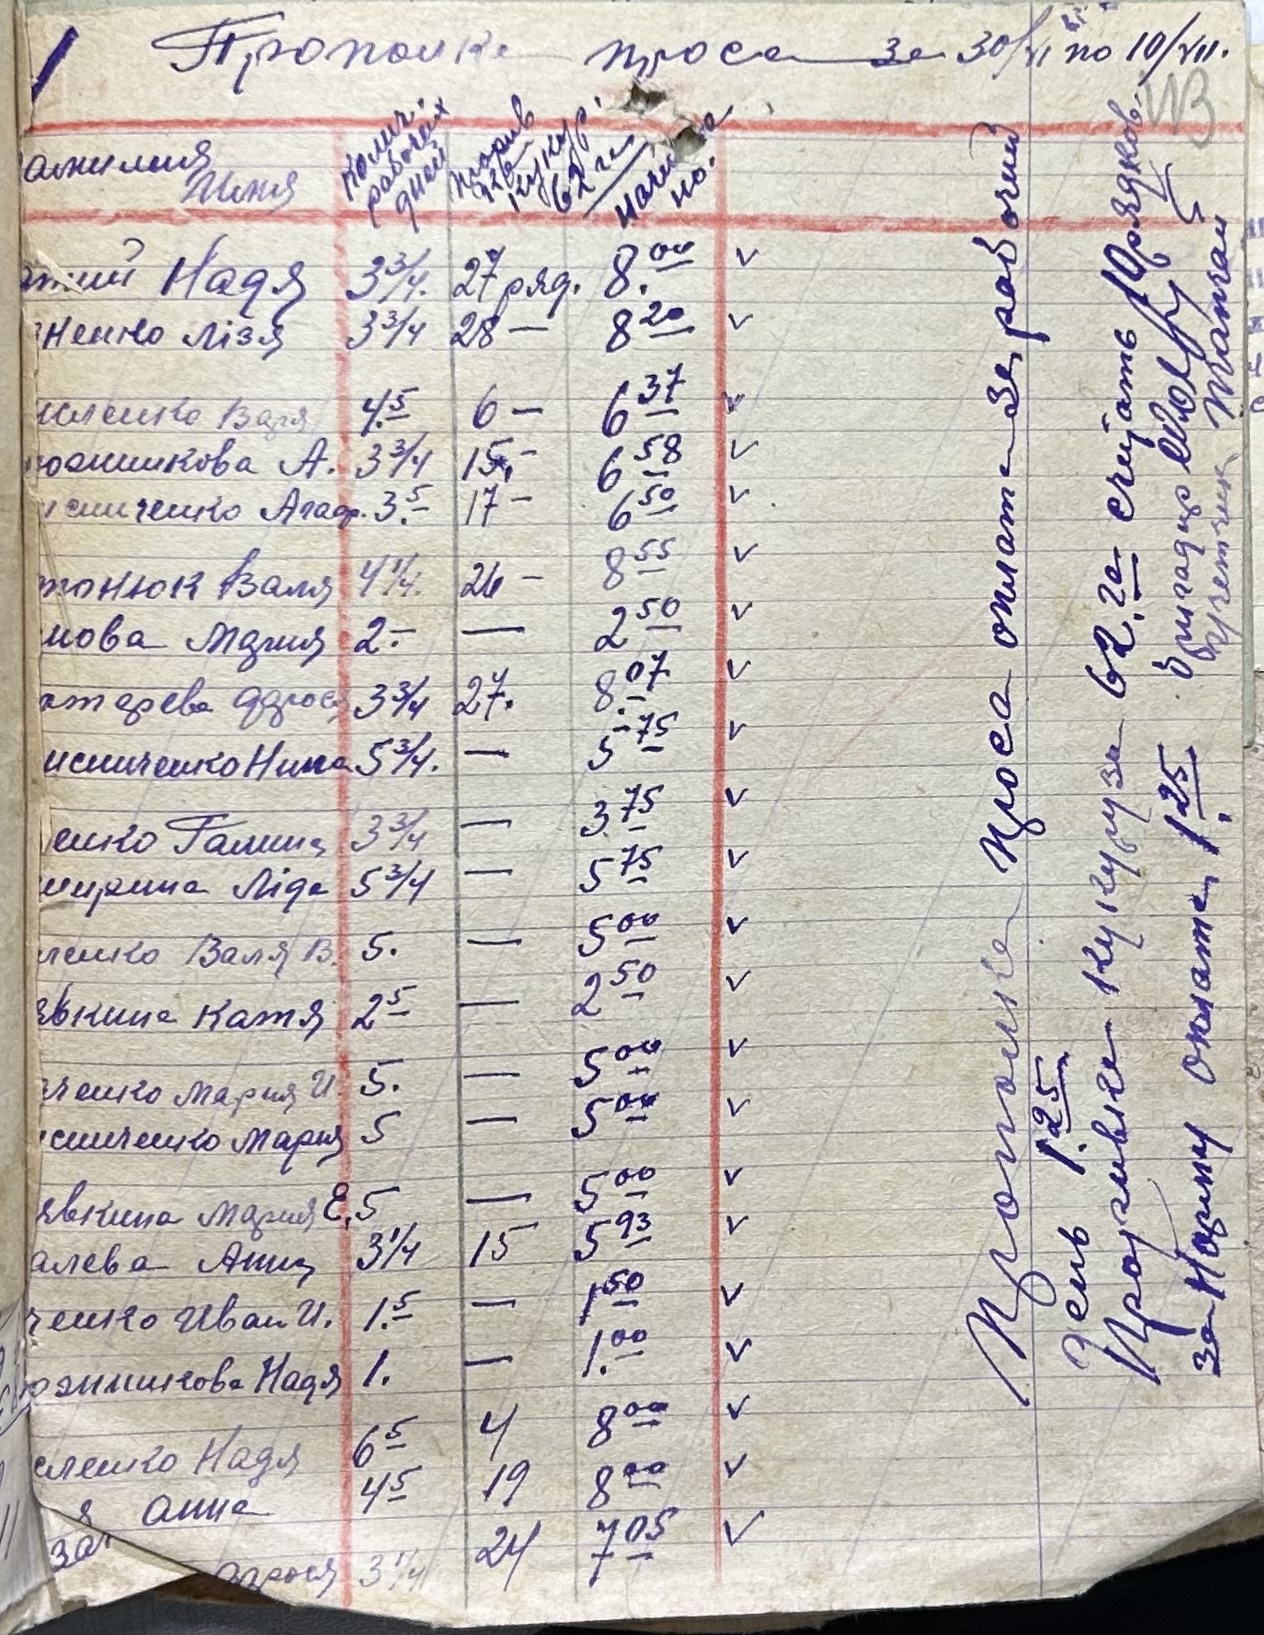 Прополка проса за 30/VI по 10/VII.
113
амилия Имя Колич. рабочих дней прорив ка кукур. 62 га начисле но.
Надя 3 3/4. 27 ряд. 8.00 v
ненко Лізя 3 3/4 28 — 8 20 v
иленко Валя 4.5 6 — 6 37 v
ожникова А. 3 3/4 15. — 6 58 v
исниченко Агаф. 3.5 17 — 6 50 v
тонюк Валя 4 1/4. 26 — 8 55 v
мова Мария 2. — — 2 50 v
отарева Фрося 3 3/4 27. 8.07 v
исниченко Нина 5 3/4. — 5 75 v
енко Галина 3 3/4 — 3.75 v
ширина Ліда 5 3/4 — 5 75 v
ленко Валя В. 5. — 5 00 v
явкина Катя 2 5 — 2 50 v
ченко Мария И. 5. — 5 00 v
сниченко Мария 5 — 5 00 v
явкина Мария Е. 5 — 5 00 v
алева Анна 3 1/4 15 5 93 v
ченко Иван И. 1.5 — 1 50 v
ожникова Надя 1. — 1.00 v
сленко Надя 6 5 4 8 00 v
я Анна 4 5 19 8 00 v
за Фрося 3 1/4 24 7 05 v
Прополка проса оплата за рабочий
день 1.25
Прорывка кукурузы 62 га считать 10 рядков
за норму оплата 1.25. бригадир
учетчик